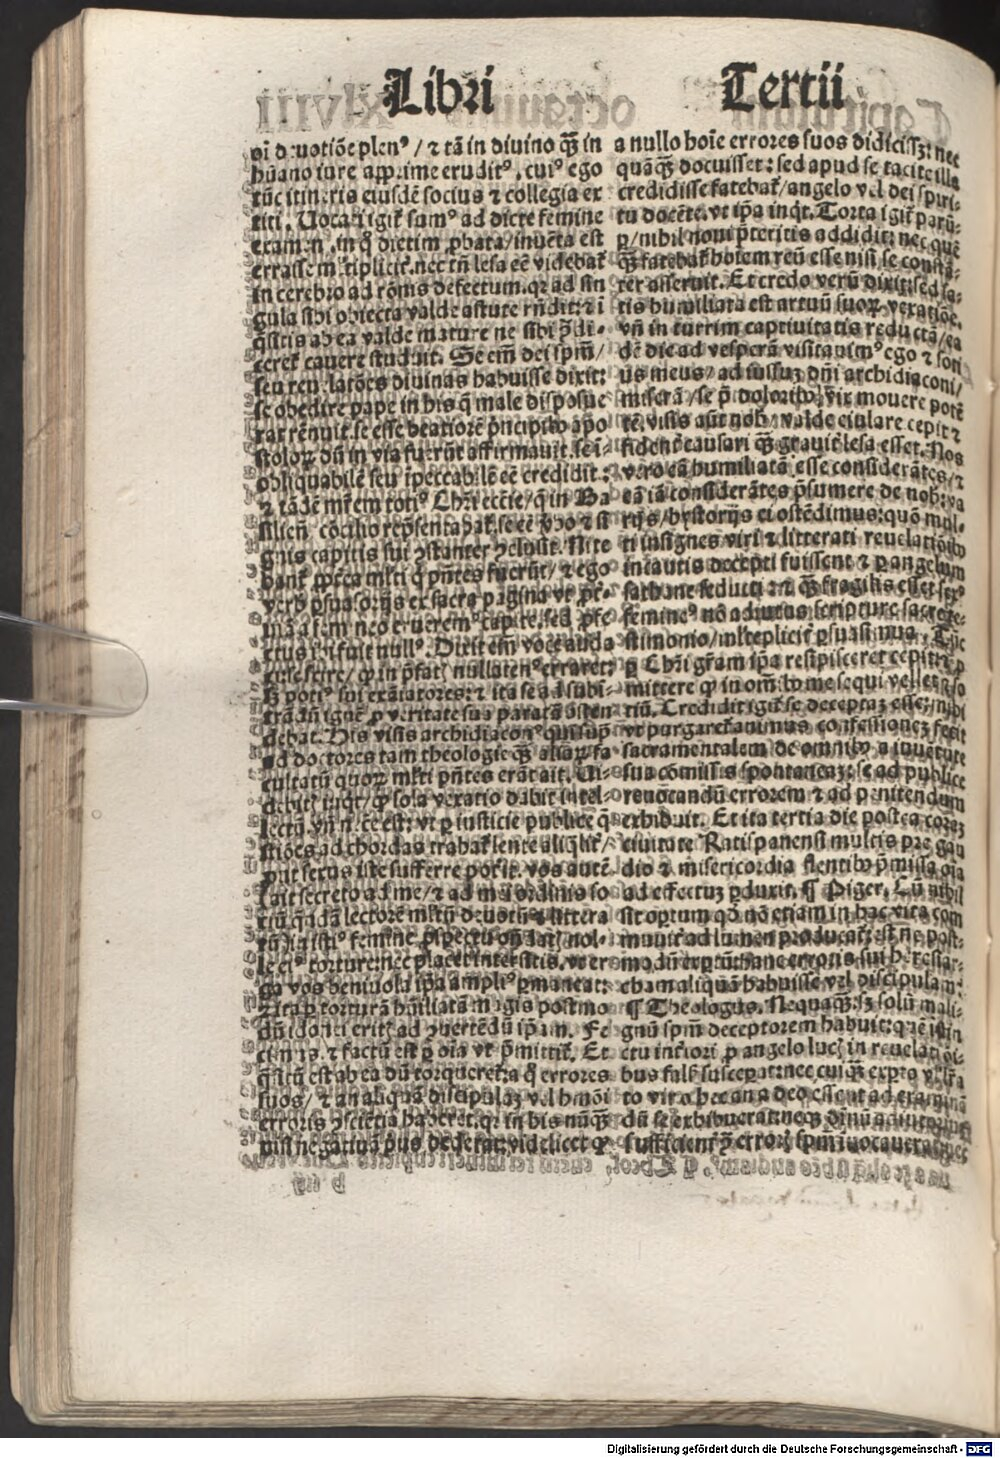 Libri Tertii
oĩ deuotiõe plenꝰ / ⁊ tã in diuino q̃ꝫ in
hũano iure apprime eruditꝰ. cuiꝰ ego
tũc itineris eiusdẽ socius ⁊ collegia ex
titi. Uocati igit̃ sumꝰ ad dicte femine
examen. in q̊ dietim ꝓbata / inuẽta est
errasse mĩtiplicit̃. nec tñ lesa eẽ videbat̃
in cerebro ad rõnis defectum. qꝛ ad sin
gula sibi obiecta valde astute rñdit: ⁊ ĩ
q̃sitis ab ea valde mature ne sibi ꝯ̃di-
ceret̃ cauere studuit. Se em̃ dei spm̃ /
seu reuelatões diuinas habuisse dixit:
se obedire pape in his q̃ male disposue
rat rẽnuit. se esse beatiorẽ pñcipibꝰ apo
stoloꝝ dũ in via fuerũt affirmauit. se ĩ-
obliquabilẽ seu ĩpeccabilẽ eẽ credidit:
⁊ tãdẽ mr̃em totiꝰ Chr̃i eccl̃ie / q̃ in Ba
silieñ. cõcilio rep̃sentabat̃ se eẽ ꝟbo ⁊ si
gnis capitis sui ꝯstanter ꝯclusit. Nite
bant̃ ꝓpt̃ea ml̃ti q̃ p̃ntes fuerũt / ⁊ ego
verb ꝑsuasorijs ex sacra pagina vt
ctus ibi fuit nullꝰ. Dixit em̃ voce auda
ci se scire / ꝙ in p̃fat nullatenꝰ erraret:
sꝫ potiꝰ sui exãiatores: ⁊ ita se ad subi-
trãdũ ignẽ ꝓ veritate sua paratã ostẽ
debat. His visis archidiaconꝰ
ad doctores tam theologie q̃ꝫ aliaꝝ fa
cultatũ quoꝝ ml̃ti p̃ntes erãt ait. Ui-
debitꝭ inq̃t / ꝙ sola vexatio dabit intel-
lectũ. vñ necẽ est: vt ꝑ iusticie publice q̃
stiões ad chordas trahat̃ lente aliq̃lit̃ /
put sexus iste sufferre pot̃it. vos autẽ
(ait secreto ad me / ⁊ ad mei ordinis so
ciũ q̃ndã lectorẽ ml̃tũ deuotũ ⁊ littera
tũ) ĩ istiꝰ femine nol-
le eiꝰ torture: nec placet intersitis. vt er
ga vos beniuola ip̃a ampliꝰ ꝑmaneat:
⁊ ita ꝑ torturã hũiliatã magis postmo
dũ idonei eritꝭ ad ꝯuertẽdũ ip̃am. Fe
cimꝰ. ⁊ factũ est ꝑ oĩa vt p̃mittit̃. Et
q̃situ est ab ea dũ torqueret̃: a q̊ errores
suos / ⁊ an aliquã discipulaꝫ vel hmõi
erroris ꝯsciẽtiã haberet. qꝛ in his nũq̃ꝫ
nisi negatiuã prius dederat: videlicet ꝙ
a nullo hoĩe errores suos didicisset: nec
quẽq̃ꝫ docuisset: sed apud se tacite illa
credidisse fatebat̃ / angelo vel dei spiri-
tu docẽte. vt ip̃a inq̃t. Torta igit̃ parũ-
ꝑ / nihil noui p̃teritis addidit: nec quẽ
q̃ꝫ fatebat̃ hoĩem reũ esse nisi se constã-
ter asseruit. Et credo verũ dixit: sed sa-
tis humiliata est artuũ suoꝝ vexatiõe.
vñ in turrim captiuitatis reductã / ea
dẽ die ad vesperã visitauimꝰ ego ⁊ soci
us meus / ad iussuꝫ dñi archidiaconi /
miserã / se p̃ doloribꝰ vix mouere potẽ
tẽ. visis aũt nobꝭ / valde eiulare cepit ⁊
fident̃ causari q̃ꝫ grauit̃ lesa esset. Nos
vero eã humiliatã esse considerãtes / ⁊
eã iã considerãtes p̃sumere de nobꝭ: va
rijs / hystorijs ei ostẽdimus: quõ mul-
ti insignes viri ⁊ litterati reuelatiõibꝰ
incautis decepti fuissent ⁊ ꝑ angelum
sathane seducti: ⁊ q̃ꝫ fragilis esset sexꝰ
femineꝰ nõ adiutus scripture sacre te-
stimonio / ml̃teplicit̃ ꝑsuasimus. Tũc
ꝑ Chr̃i gr̃am ip̃a resipiscere cepit: ⁊ ꝓ
mittere ꝙ in om̃ibꝰ me sequi vellet
tiũ. Credidit igit̃ se deceptaꝫ esse: mihi
vt purgaret̃ animus confessionez fecit
sacramentalem de omnibꝰ a iuuẽtute
sua cõmissis spontaneaꝫ: se ad publice
reuocandũ errorem ⁊ ad penitendum
exhibuit. Et ita tertia die postea coraꝫ
ciuitate Ratispanensi multis pre gau
dio ⁊ misericordia flentibꝰ p̃missa oĩa
ad effectuꝫ ꝑduxit. ¶ Piger. Cũ nihil
sit optum qd̃ nõ etiam in hac vita com
muit̃ ad lumen producat̃: est ne post-
modũ exptũ: hanc erroris sui heresiar-
cham aliquã habuisse vel discipulam:
¶ Theologus. Nequaq̃ꝫ. sꝫ solũ mali-
gnũ spm̃ deceptorem habuit: quẽ istin
ctu inťiori ꝓ angelo lucꝭ in reuelatiõi-
bus falsꝭ susceperat: nec cuiq̃ꝫ exꝑto
to viro hec an a deo essent ad examinã
dũ se exhibuerat: neqꝫ diuinũ adiutoriũ
sufficient̃ ꝯ̃ errorꝭ spm̃ inuocauerat